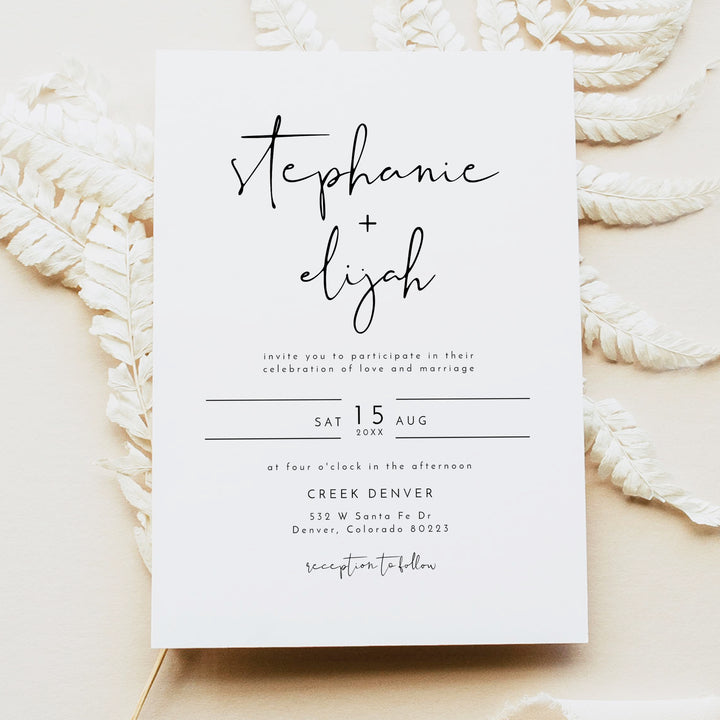 stephanie
+
elijah
invite you to participate in their
celebration of love and marriage
SAT 15 AUG
20XX
at four o'clock in the afternoon
CREEK DENVER
532 W Santa Fe Dr
Denver, Colorado 80223
reception to follow